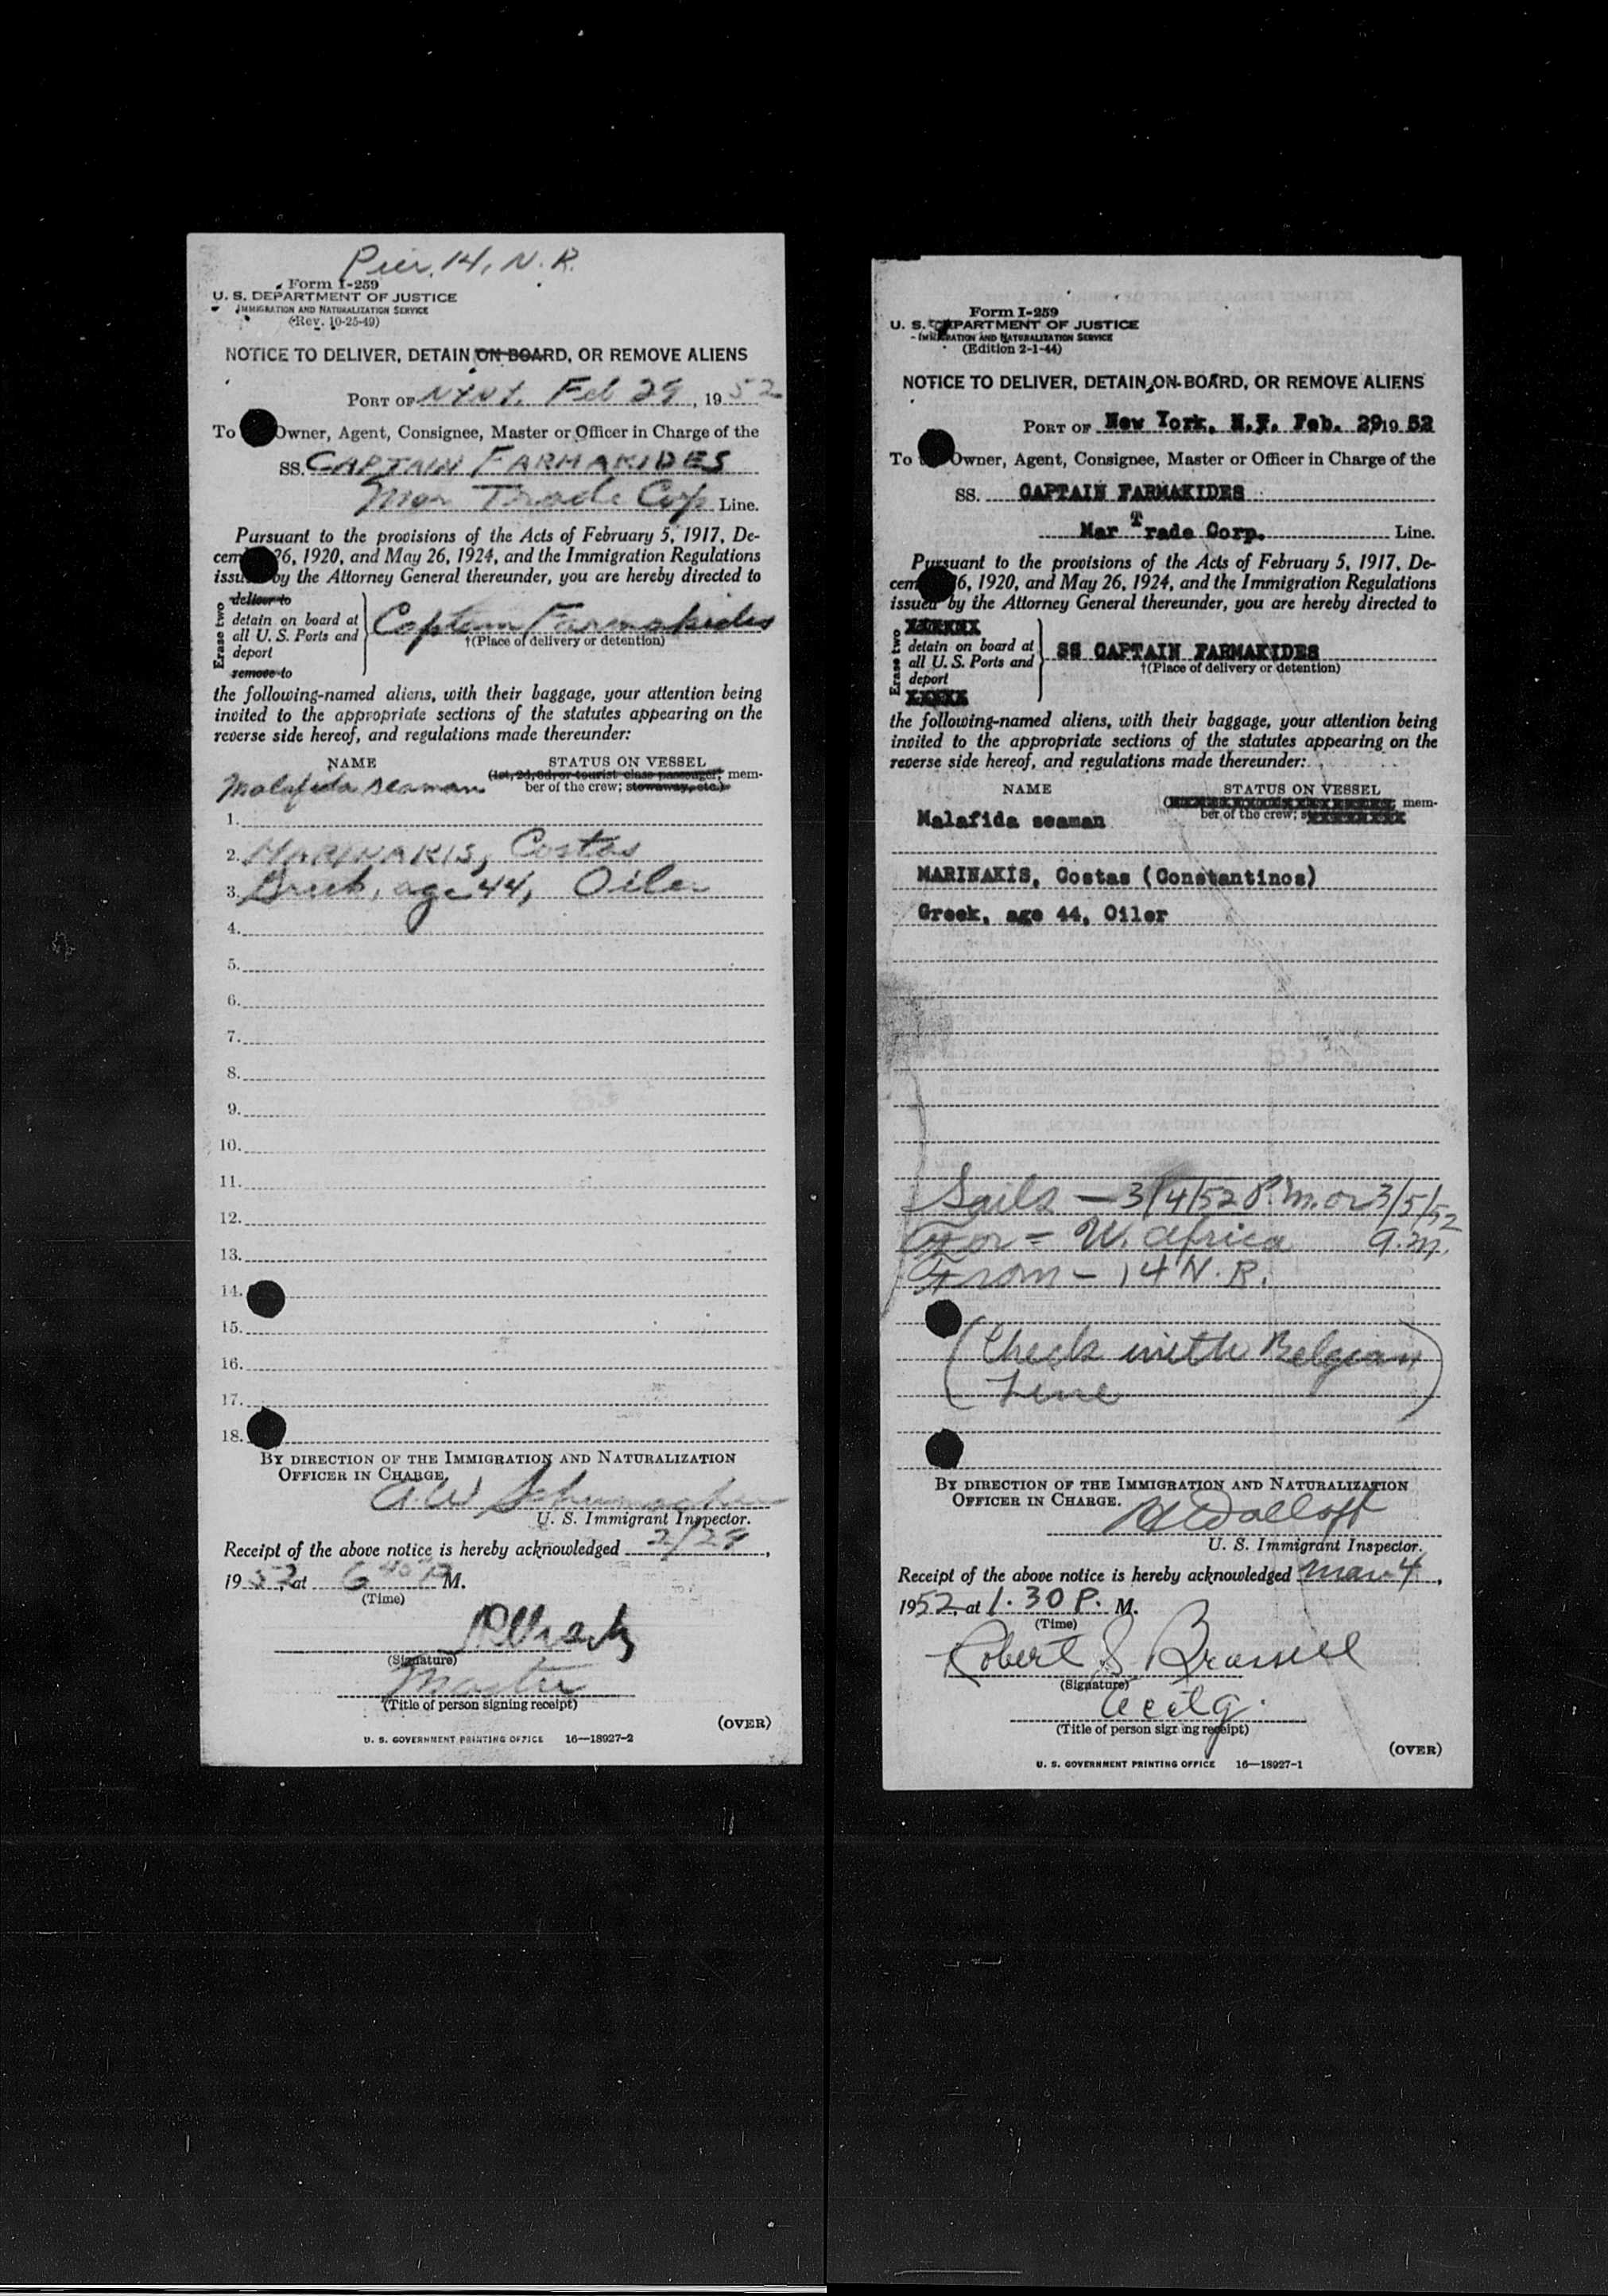 Pier, 14, N. R.
Form I-259
U. S. DEPARTMENT OF JUSTICE
IMMIGRATION AND NATURALIZATION SERVICE
(Rev. 10-25-49)
NOTICE TO DELIVER, DETAIN ON BOARD, OR REMOVE ALIENS
PORT OF NYNY. Feb 29, 1952
To Owner, Agent, Consignee, Master or Officer in Charge of the
SS. CAPTAIN FARMAKIDES
Mar Trade Corp Line.
Pursuant to the provisions of the Acts of February 5, 1917, De-
cem 26, 1920, and May 26, 1924, and the Immigration Regulations
issu by the Attorney General thereunder, you are hereby directed to
Erase two
deliver to
detain on board at
all U. S. Ports and
deport
remove to
Captain Farmakides
†(Place of delivery or detention)
the following-named aliens, with their baggage, your attention being
invited to the appropriate sections of the statutes appearing on the
reverse side hereof, and regulations made thereunder:
NAME STATUS ON VESSEL
(1st, 2d, 3d, or tourist class passenger; mem-
ber of the crew; stowaway, etc.)
Malafida seaman
1.
2. MARINAKIS, Costas
3. Greek, age 44, Oiler
4.
5.
6.
7.
8.
9.
10.
11.
12.
13.
14.
15.
16.
17.
18.
BY DIRECTION OF THE IMMIGRATION AND NATURALIZATION
OFFICER IN CHARGE.
A.W Schumacher
U. S. Immigrant Inspector.
Receipt of the above notice is hereby acknowledged 2/29,
1952, at 6 40 P M.
(Time)
(Signature)
Master
(Title of person signing receipt)
(OVER)
U. S. GOVERNMENT PRINTING OFFICE 16—18927-2
Form I-259
U. S. DEPARTMENT OF JUSTICE
IMMIGRATION AND NATURALIZATION SERVICE
(Edition 2-1-44)
NOTICE TO DELIVER, DETAIN ON BOARD, OR REMOVE ALIENS
PORT OF New York, N.Y. Feb. 29 19 52
To Owner, Agent, Consignee, Master or Officer in Charge of the
SS. CAPTAIN FARMAKIDES
Mar Trade Corp. Line.
Pursuant to the provisions of the Acts of February 5, 1917, De-
cem 6, 1920, and May 26, 1924, and the Immigration Regulations
issued by the Attorney General thereunder, you are hereby directed to
Erase two
XXXXXXX
detain on board at
all U. S. Ports and
deport
XXXXX
SS CAPTAIN FARMAKIDES
†(Place of delivery or detention)
the following-named aliens, with their baggage, your attention being
invited to the appropriate sections of the statutes appearing on the
reverse side hereof, and regulations made thereunder:
NAME STATUS ON VESSEL
mem-
ber of the crew;
Malafida seaman
MARINAKIS, Costas (Constantinos)
Greek, age 44, Oiler
Sails — 3/4/52 P.m. or 3/5/52
For = W. Africa a.m.
From — 14 N. R.
(Check with Belgian
Line)
BY DIRECTION OF THE IMMIGRATION AND NATURALIZATION
OFFICER IN CHARGE.
U. S. Immigrant Inspector.
Receipt of the above notice is hereby acknowledged Mar. 4,
1952, at 1.30 P. M.
(Time)
Robert S
(Signature)
(Title of person signing receipt)
(OVER)
U. S. GOVERNMENT PRINTING OFFICE 16—18927-1